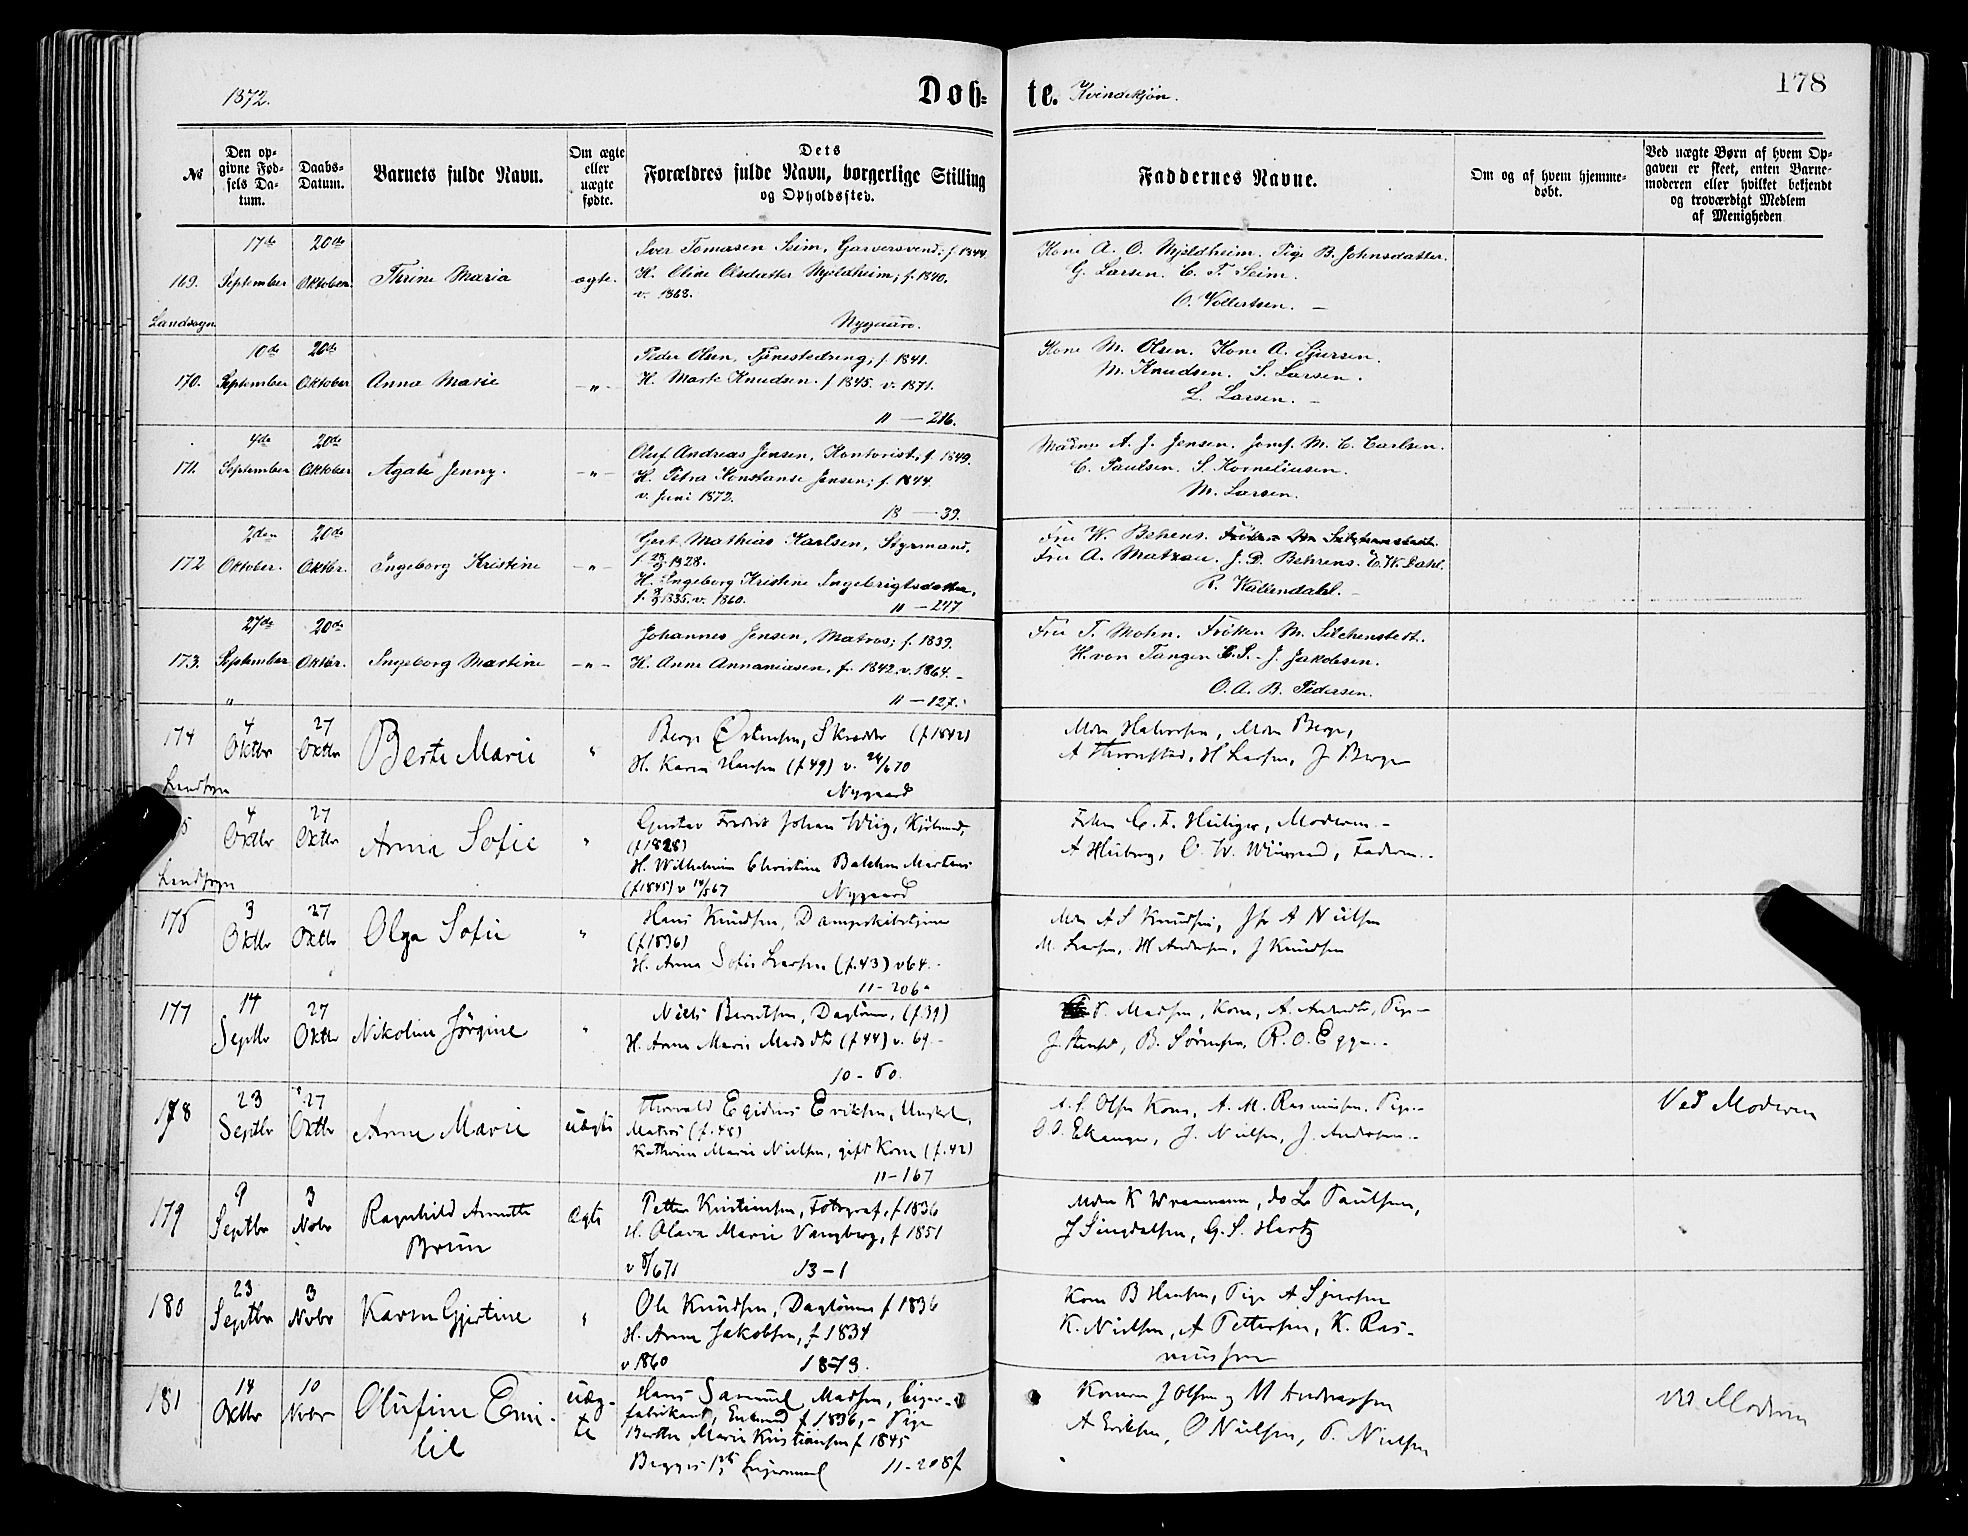 1872.
Døb-
te.
Kvindekjøn.
178
No
Den op-
givne Fød-
sels Da-
tum.
Daabs-
Datum.
Barnets fulde Navn.
Om ægte
eller
uægte
fødte.
Dets
Forældres fulde Navn, borgerlige Stilling
og Opholdssted.
Faddernes Navne.
Om og af hvem hjemme-
døbt.
Ved uægte Børn af hvem Op-
gaven er skeet, enten Barne-
moderen eller hvilket bekjendt
og troværdigt Medlem
af Menigheden
169.
Landsogn
17de
September
20de
Oktober
Thrine Maria
ægte.
Iver Tomasen Seim, Garversvend, f 1844
H. Oline Olsdatter Mjeldheim; f. 1840.
v. 1868.
Nygaard.
Kone A. O. Mjeldheim. Pige B. Johnsdatter.
G. Larsen. C. T. Seim.
O. Vollertsen. –
170.
10de
September
20de
Oktober
Anna Marie
–"–
Peder Olsen, Tjenestedreng; f 1841.
H. Marte Knudsen. f 1845. v. 1871.
11 — 216.
Kone M. Olsen. Kone A. Sjursen.
M. Knudsen. S. Larsen.
L. Larsen. –
171.
4de
September
20de
Oktober
Agate Jenny.
–"–
Oluf Andreas Jensen, Kontorist, f. 1849.
H. Petra Konstanse Jensen; f. 1844.
v. Juni 1872.
18 — 39.
Madm A. J. Jensen. Jomf. M. C. Carlsen.
C. Paulsen. S. Korneliusen.
M. Larsen.
172
2den
Oktober.
20de
Oktbr.
Ingeborg Kristine
–"–
Gert Mathias Karlsen, Styrmand,
H. Ingeborg Kristine Ingebrigtsdatter,
1835. v. 1860.
11 — 247
Fru W. Behrens.
Fru A. Matzau. J. D. Behrens. C. W. Dahl.
R. Kallendahl. –
173.
27de
September
"
20de
Oktbr.
Ingeborg Martine
–"–
Johannes Jensen, Matros; f. 1839.
H. Anne Annaniasen, f. 1842. v. 1864. –
11 — 127.
Fru T. Mohn. Frøken M. Silchenstedt.
H. von Tangen J. Jakobsen.
O. A. B. Pedersen.
174
Landsogn
4
Oktbr
27
Oktbr
Berte Marie
"
Berge Østensen, Skrædder (f 1842)
H. Karen Hansen (f 49) v. 24/6 70
Nygaard
Mdm Halvorsen, Mdm Berge,
H Larsen, J Berge
5
Landsogn
4
Oktbr
27
Oktbr
Anna Sofie
"
Gustav Fredrik Johan Wiig, Kjøbmd,
(f 1828)
H. Wilhelmine Christine Balchen Martens
(f 1845) v 14/5 67
Nygaard
C. F. Heiliger, Moderen. –
O. W. Faderen. –
176
3
Oktbr
27
Oktbr
Olga Sofie
"
Hans Knudsen,
(f 1836)
H. Anna Sofie Larsen (f. 43) v 64. –
11 – 206a
Mdm A S Knudsen, Jfr A Nielsen
M. Larsen, M Andersen, J Knudsen
177
14
Septbr
27
Oktbr
Nikoline Jørgine
"
Niels Berntsen, Daglønner, (f. 39)
H. Anne Marie Madsdtr (f 44) v. 69. –
10 – 60.
Madsen, Kone, A. Pige –
B. Sørensen, R. O. Egge. –
178
23
Septbr
27
Oktbr
Anne Marie
uægte
Thorvald Egidius Eriksen, Ungkarl,
Matros (f. 48)
Kathrine Marie Nielsen, gift Kone (f. 42)
11 – 167
Olsen Kone, A. M. Rasmussen, Pige. –
O. O. Ekanger, J. Nielsen, J. Andersen. –
Ved Moderen
179
9
Septbr
3
Novbr
Ragnhild Annette
Brun
ægte
Petter Kristiansen, Fotograf, f 1836
H. Olava Marie Vangberg, f 1851
v 8/6 71
13 – 1
Mdm K Wraamann, do L Paulsen,
J Singdalsen, G. S. Hartz
180
23
Septbr
3
Novbr
Karen Gjertine
"
Ole Knudsen, Daglønner f 1836
H. Anne Jakobsen, f 1834
v 1860
18 – 73.
Kone B Hansen, Pige A Sjursen
K. Nielsen, A Pettersen, K. Ras-
mussen
181
14
Oktbr
10
Novbr
Olufine Emi-
lie
uæg-
te
Hans Samuel Madsen, Cigar-
fabrikant, Enkemd f 1836, – Pige
Berthe Marie Kristiansen f 1845
Begges 1ste Leiermaal
11 – 208f
Konerne J Olsen og M Andreassen
A Eriksen, O Nielsen, P. Nielsen
Ved Moderen